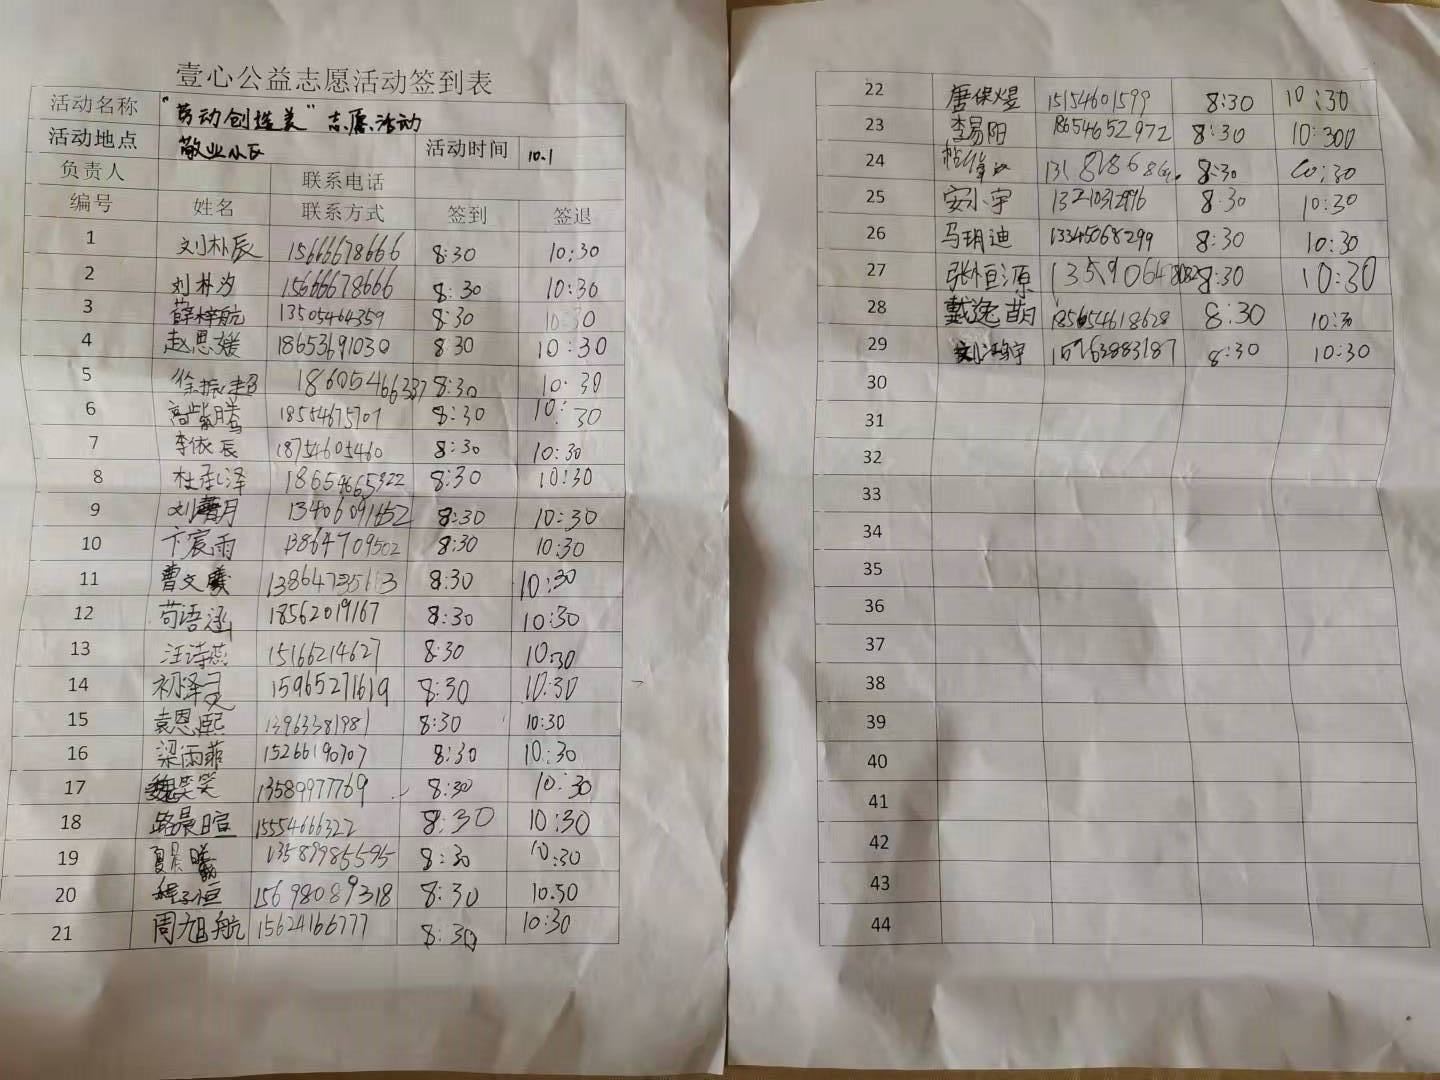 壹心公益志愿活动签到表
活动名称 "劳动创造美"志愿活动
活动地点 敬业小区 活动时间 10.1
负责人 联系电话
编号 姓名 联系方式 签到 签退
1 刘朴辰 15666678666 8:30 10:30
2 刘朴汐 15666678666 8:30 10:30
3 薛梓航 13505464359 8:30 10:30
4 赵思媛 18653691030 8:30 10:30
5 徐振超 18605466337 8:30 10:30
6 高紫腾 18554675707 8:30 10:30
7 李依辰 18754605460 8:30 10:30
8 杜承泽 18654665322 8:30 10:30
9 刘 月 13406091652 8:30 10:30
10 卞宸雨 13864709502 8:30 10:30
11 曹文曦 13864735613 8:30 10:30
12 苟语涵 18562019167 8:30 10:30
13 汪诗 15166214627 8:30 10:30
14 初泽 15965271619 8:30 10:30
15 袁恩熙 13963381981 8:30 10:30
16 梁雨菲 15266190707 8:30 10:30
17 魏笑笑 13589977769 8:30 10:30
18 路晨暄 15554666322 8:30 10:30
19 夏 曦 13589985595 8:30 10:30
20 程子恒 15698089318 8:30 10.50
21 周旭航 15624166777 8:30 10:30
22 唐保煜 15154601599 8:30 10:30
23 李易阳 18654652972 8:30 10:300
24 8:30 10:30
25 安小宇 13210312996 8:30 10:30
26 马玥迪 13345068299 8:30 10:30
27 张恒源 8:30 10:30
28 戴逸萌 185654618628 8:30 10:30
29 刘 宇 15763883187 8:30 10:30
30
31
32
33
34
35
36
37
38
39
40
41
42
43
44